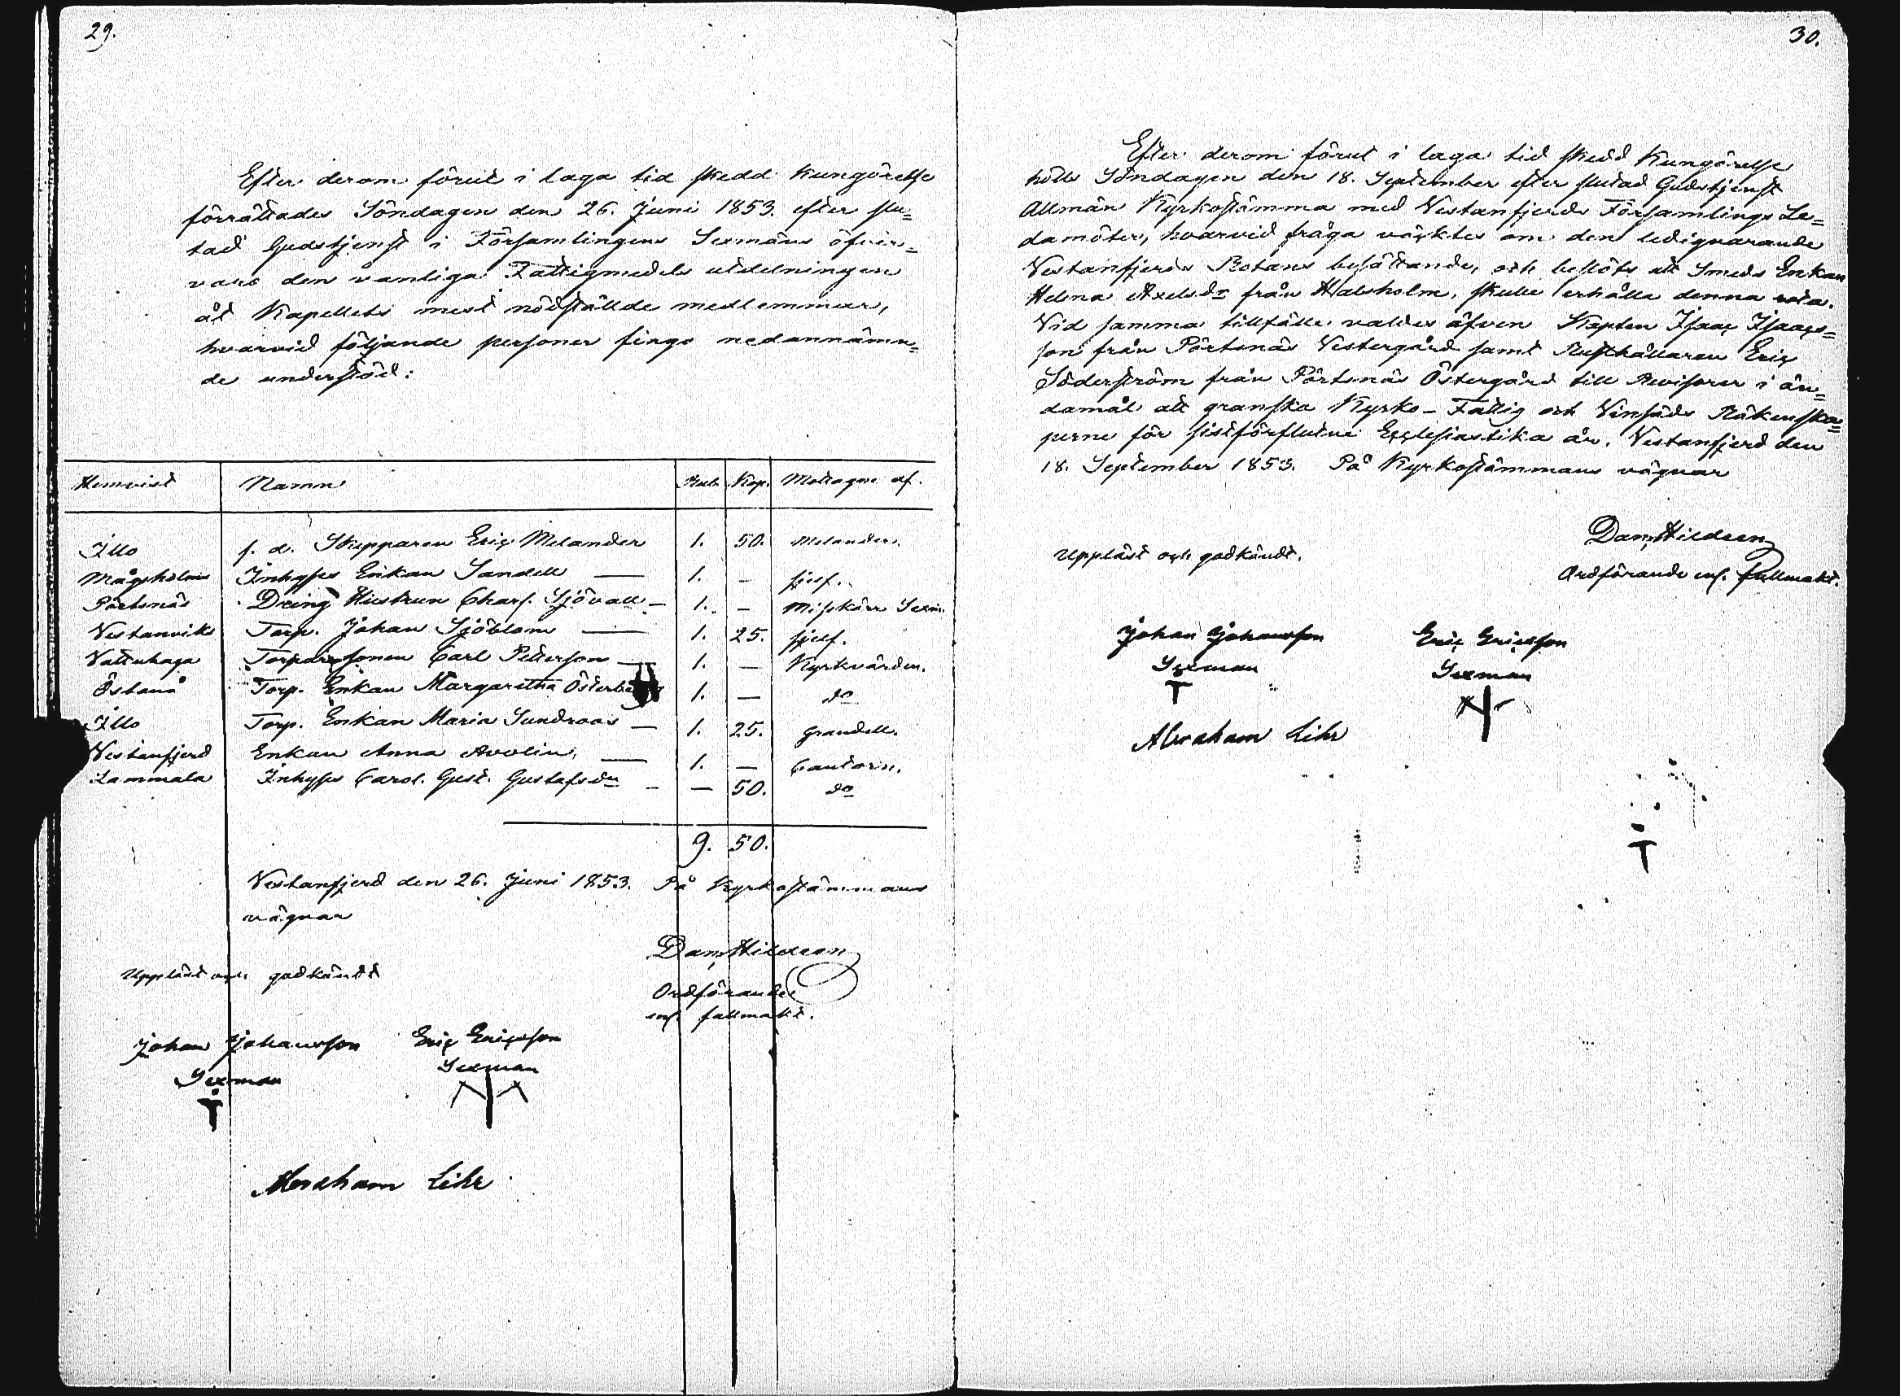 29.
Efter derom förut i laga tid skedd kungörelse
förrättades Söndagen den 26. Juni 1853. efter slu=
tad Gudstjenst i Församlingens Sexmäns öfver=
varo den vanliga Fattigmedels utdelningen
åt Kapellets mest nödställde medlemmar,
hvarvid följande personer fingo nedannämn=
de understöd:
Hemvist Namn Rub. Kop. Mottagne af.
Illo f. d. Skepparen Eric Melander 1. 50. Melander.
Mågsholm Inhyses Enkan Sandell — 1. — sjelf.
Pörtsnäs Dreng Hustrun Charl. Sjövall — 1. — Misskärr Sexm.
Vestanvik Torp. Johan Sjöblom — 1. 25. sjelf.
Vattuhaga Torparesonen Carl Petterson — 1. — Kyrkvärden.
Östanå Torp. Enkan Margaretha Österberg 1. — do
Illo Torp. Enkan Maria Sundroos — 1. 25. Grandell.
Vestanfjerd Enkan Anna Avolin, — 1. — Cantorn.
Lammala Inhyses Carol. Gust. Gustafsdr — — 50. do
9. 50.
Vestanfjerd den 26. Juni 1853. På Kyrkostämmans
vägnar
Dan. Hildeen
Ordförande
enl. fullmakt.
Uppläst och godkändt
Johan Johansson Eric Ericsson
Sexman Sexman
Abraham Lihr
30.
Efter derom förut i laga tid skedd Kungörelse
hölls Söndagen den 18. September efter slutad Gudstjenst
Allmän Kyrkostämma med Vestanfjerds Församlings Le=
damöter, hvarvid fråga väcktes om den ledigvarande
Vestanfjerds Rotans besättande, och beslöts att Smeds Enkan
Helena Axelsdr från Halsholm, skulle erhålla denna rota.
Vid samma tillfälle valdes äfven Kapten Isaac Isaacs=
son från Pörtsnäs Vestergård samt Rusthållaren Eric
Söderström från Pörtsnäs Östergård till Revisorer i än=
damål att granska Kyrko- Fattig och Vinsäds Räkenska=
perne för sistförflutne Ecclesiastika år. Vestanfjerd den
18. September 1853. På Kyrkostämmans vägnar
Dan. Hildeen
Ordförande enl. fullmakt.
Uppläst och godkändt.
Johan Johansson Eric Ericsson
Sexman Sexman
Abraham Lihr